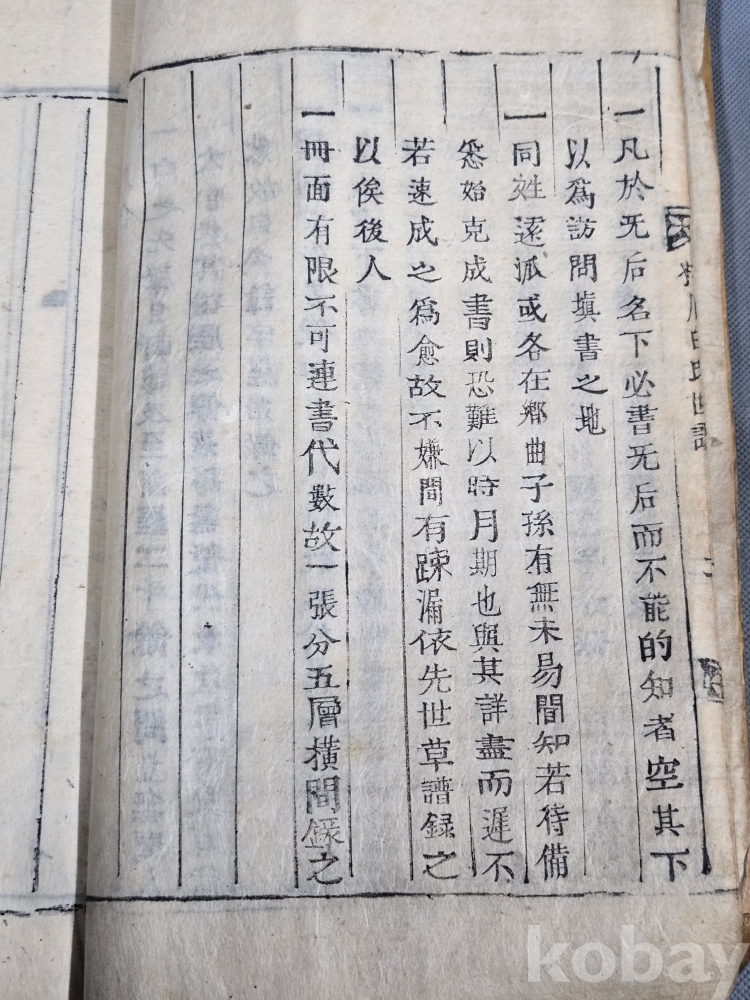 白氏世譜
一凡於旡后名下必書旡后而不能的知者空其下
以爲訪問塡書之地
一同姓遠派或各在鄕曲子孫有無未易間知若待備
悉始克成書則恐難以時月期也與其詳盡而遲不
若速成之爲愈故不嫌間有踈漏依先世草譜録之
以俟後人
一冊面有限不可連書代數故一張分五層橫間錄之
kobay